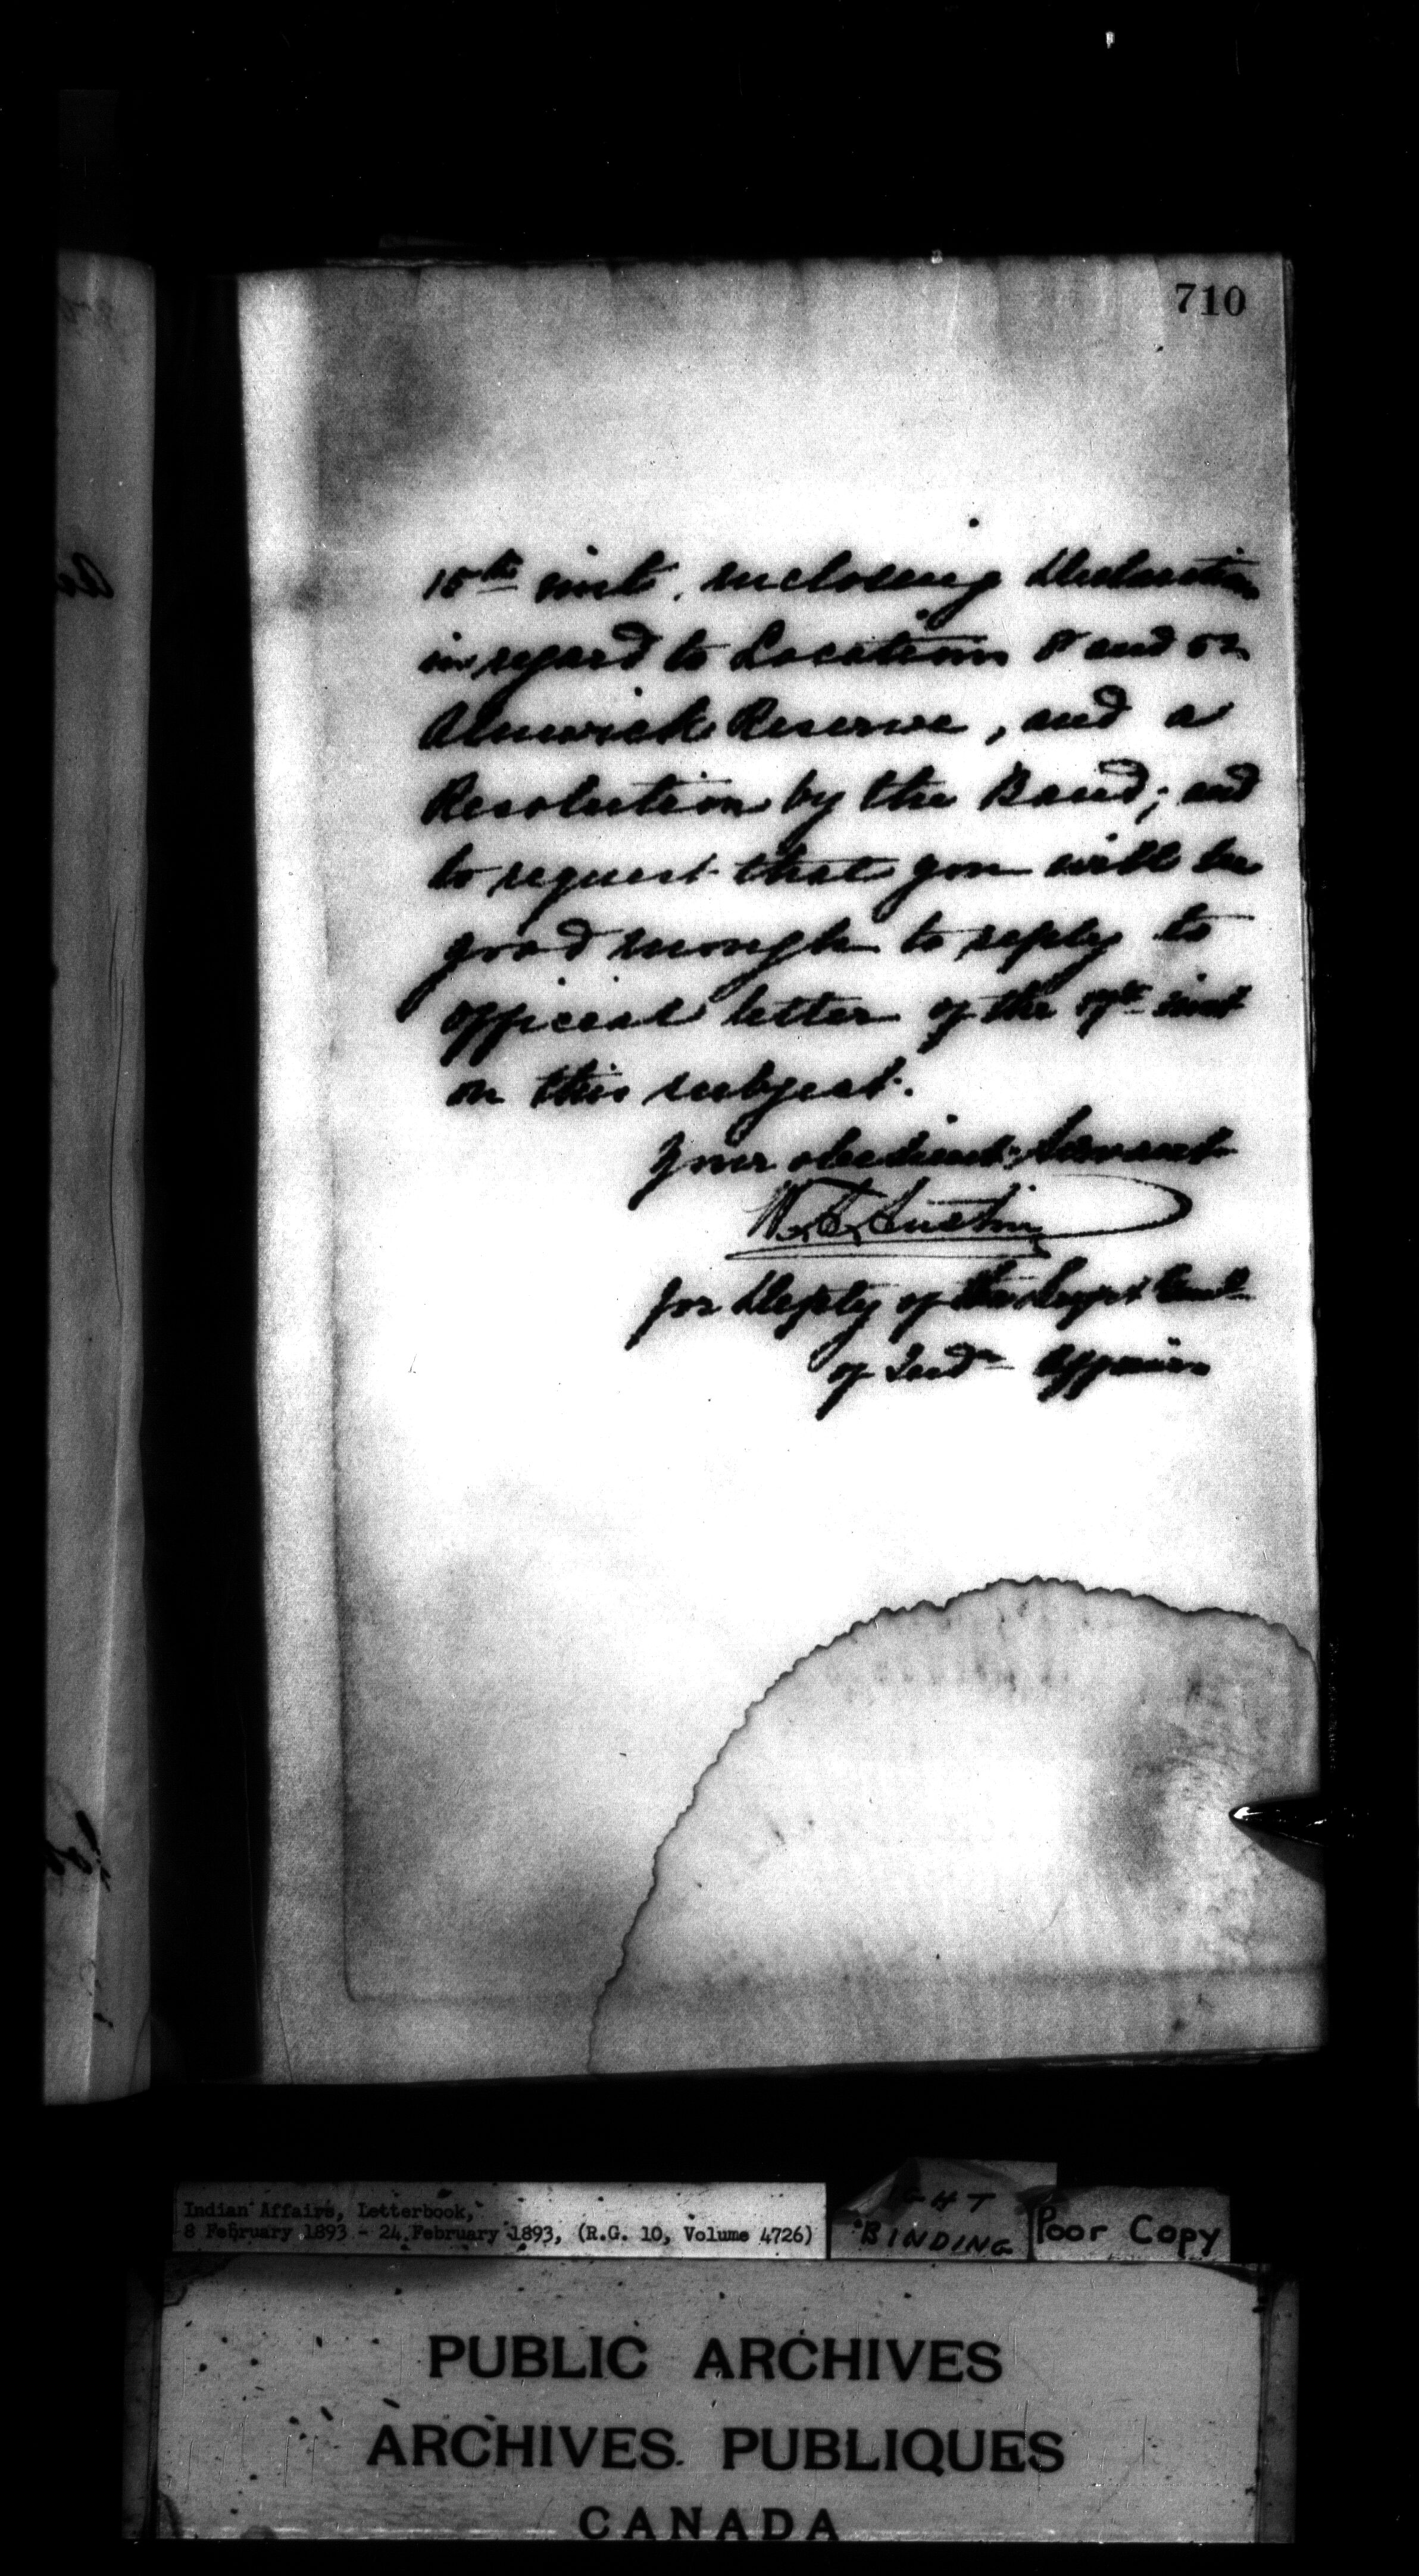 710
15th inst. inclosing Declaration
in regard to Locations 8 and 52
Alnwick Reserve, and a
Resolution by the Band; and
to request that you will be
good enough to reply to
official letter of the 7th inst
on this subject.
Your obedient Servant
W. A. Austin
for Depty of the Supt Genl
of Indn Affairs
Indian Affairs, Letterbook,
8 February 1893 - 24 February 1893, (R.G. 10, Volume 4726)
BINDING
Poor Copy
PUBLIC ARCHIVES
ARCHIVES PUBLIQUES
CANADA